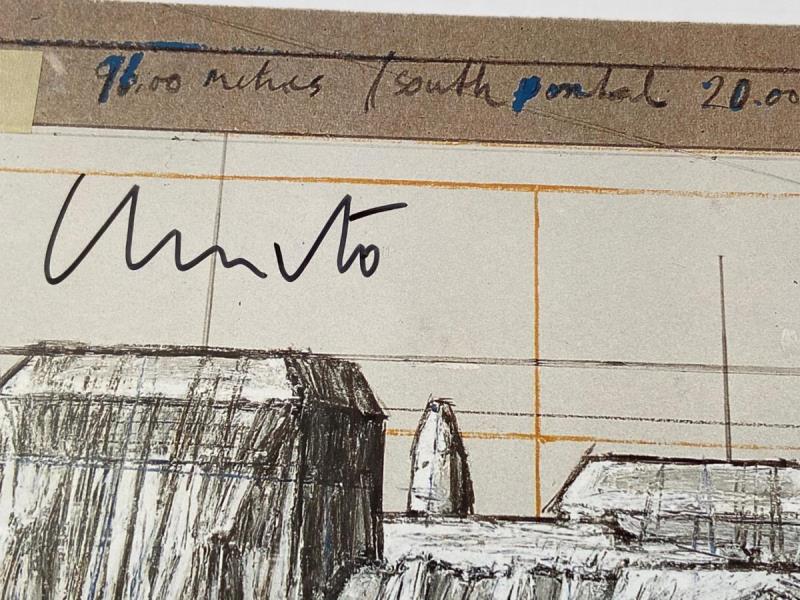 96.00 metres / south portal 20.00
Christo